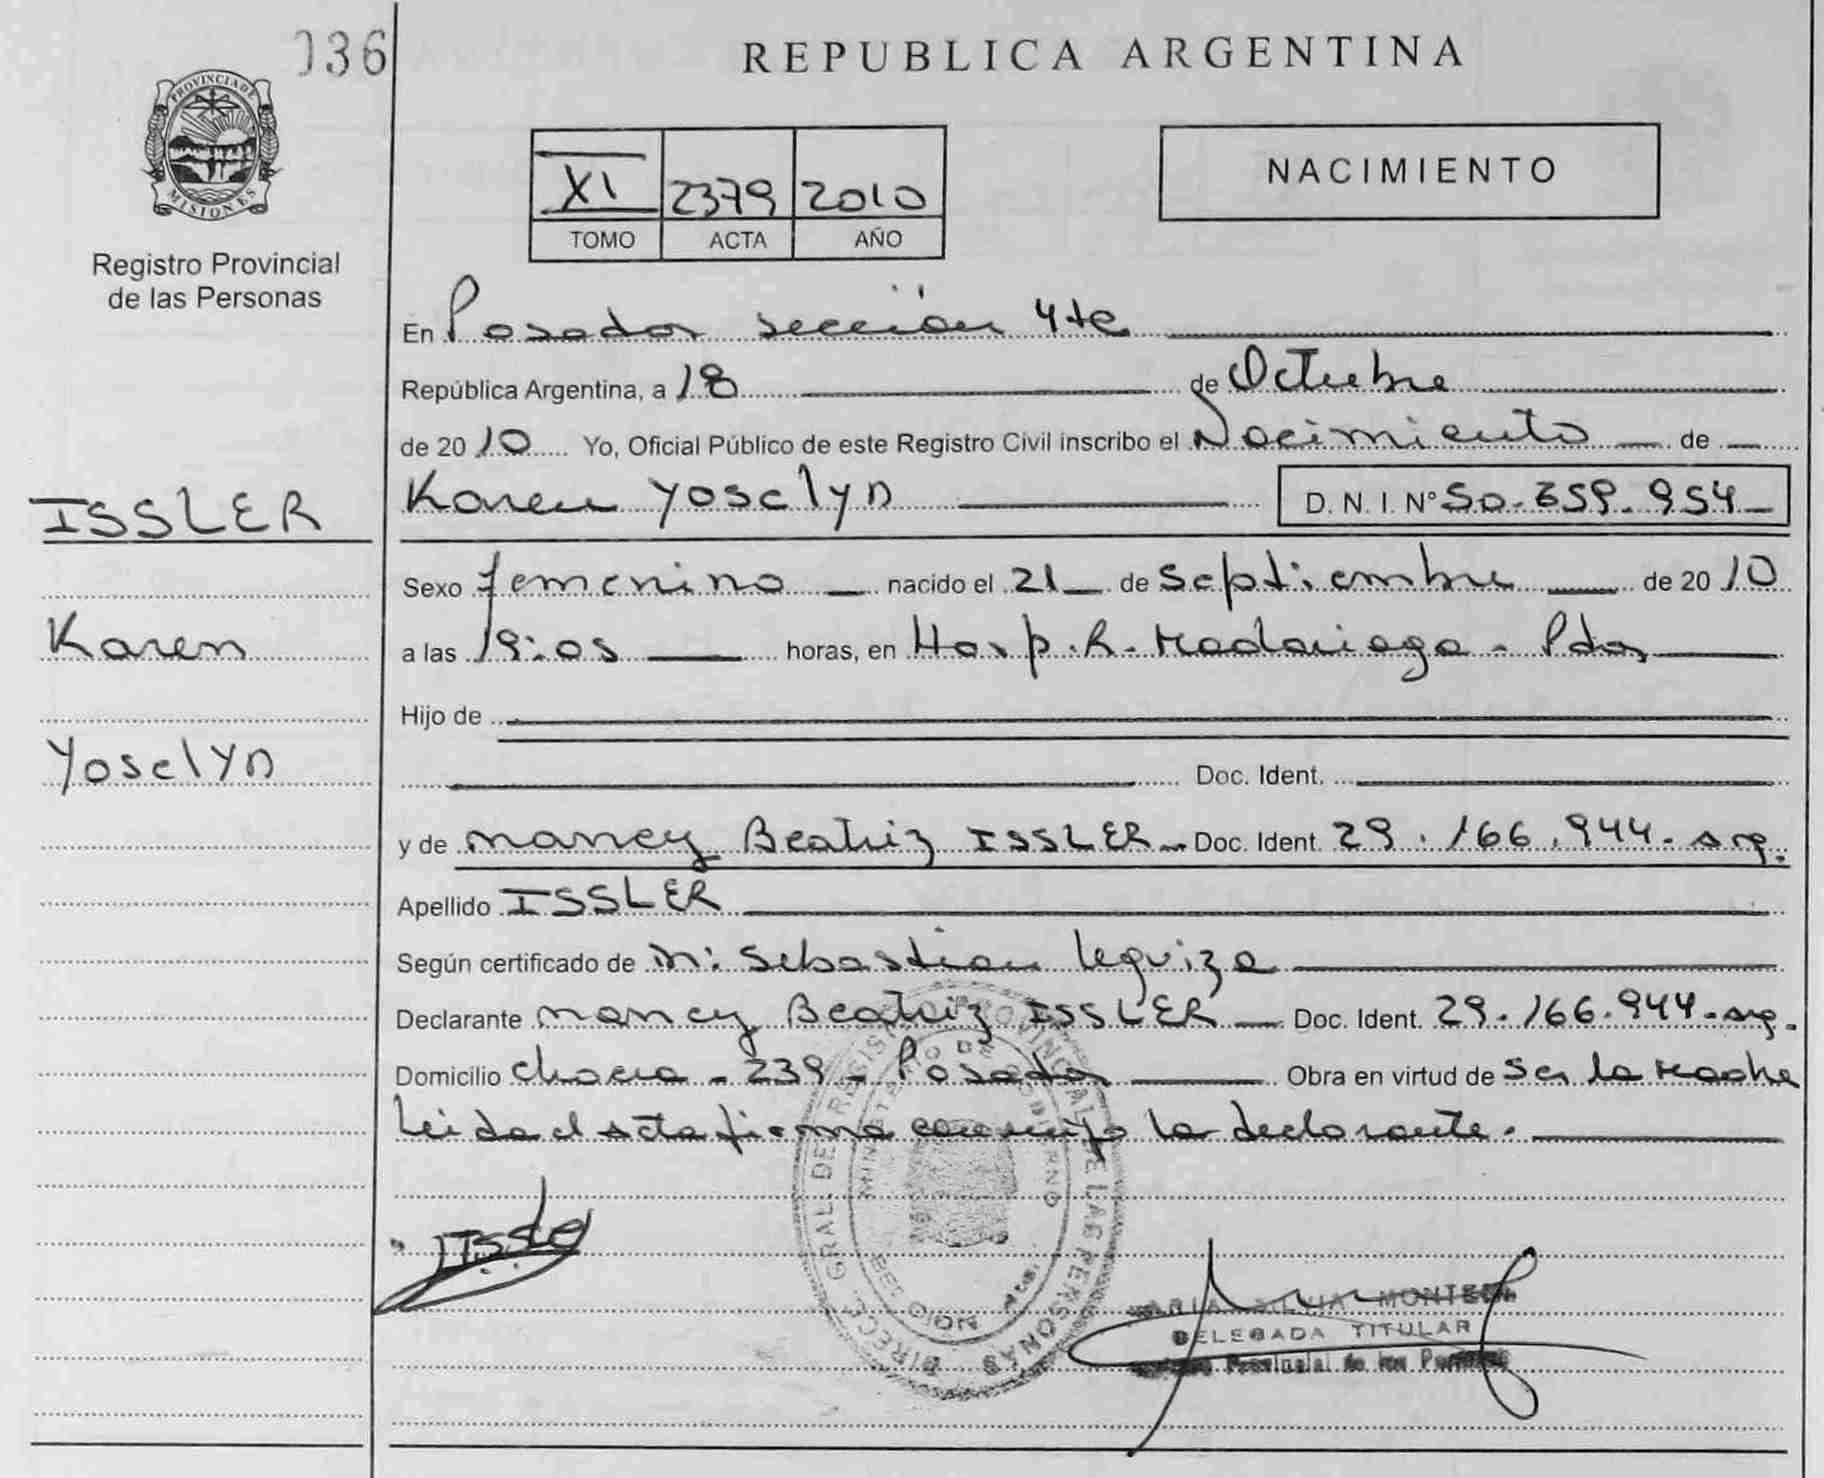 036
REPUBLICA ARGENTINA
PROVINCIA DE
MISIONES
Registro Provincial
de las Personas
XI 2379 2010
TOMO ACTA AÑO
NACIMIENTO
En Posadas sección 4ta
República Argentina, a 18 de Octubre
de 2010 Yo, Oficial Público de este Registro Civil inscribo el Nacimiento de
ISSLER
Karen Yoselyn D. N. I. N° 50.359.954
Sexo femenino nacido el 21 de Septiembre de 2010
Karen
a las 19:05 horas, en Hosp. R. Madariaga - Pdas
Hijo de
Yoselyn
Doc. Ident.
y de Nancy Beatriz ISSLER Doc. Ident. 29.166.944 - arg.
Apellido ISSLER
Según certificado de Sebastian Leguiza
Declarante Nancy Beatriz ISSLER Doc. Ident. 29.166.944 - arg.
Domicilio chacra - 239 - Posadas Obra en virtud de Ser la Madre
Leida el acta firma conmigo la declarante.
DIREC. GRAL. DE REGISTRO PROVINCIAL DE LAS PERSONAS
MINISTERIO DE GOBIERNO
MISIONES
ISSLER
MARIA SILVIA
DELEGADA TITULAR
Provincial de las Personas